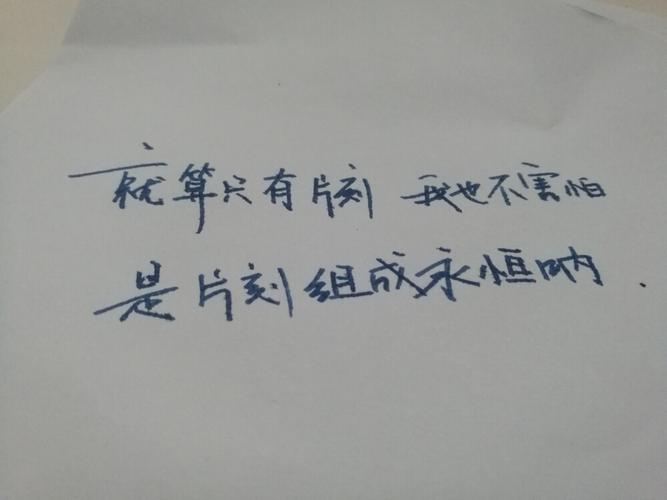 就算只有片刻 我也不害怕
是片刻组成永恒呐.